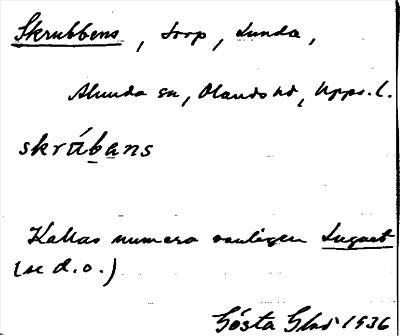 Skrubbens, torp, Lunda,
Alunda sn, Olands hd, Upps. l.
skrúbans
Kallas numera vanligen Lugnet
(se d.o.)
Gösta 1936